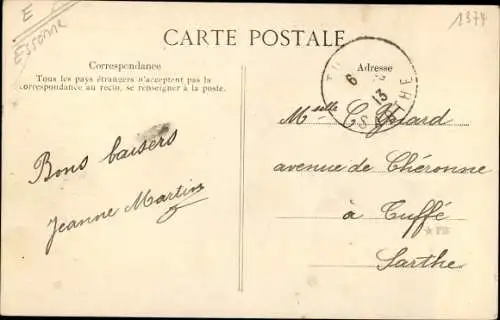 E
Essonne
1374
CARTE POSTALE
Correspondance
Tous les pays étrangers n'acceptent pas la
correspondance au recto, se renseigner à la poste.
Adresse
6
13
SARTHE
Bons baisers
Jeanne Martin
Mselle C
avenue de Chéronne
à Tuffé
Sarthe